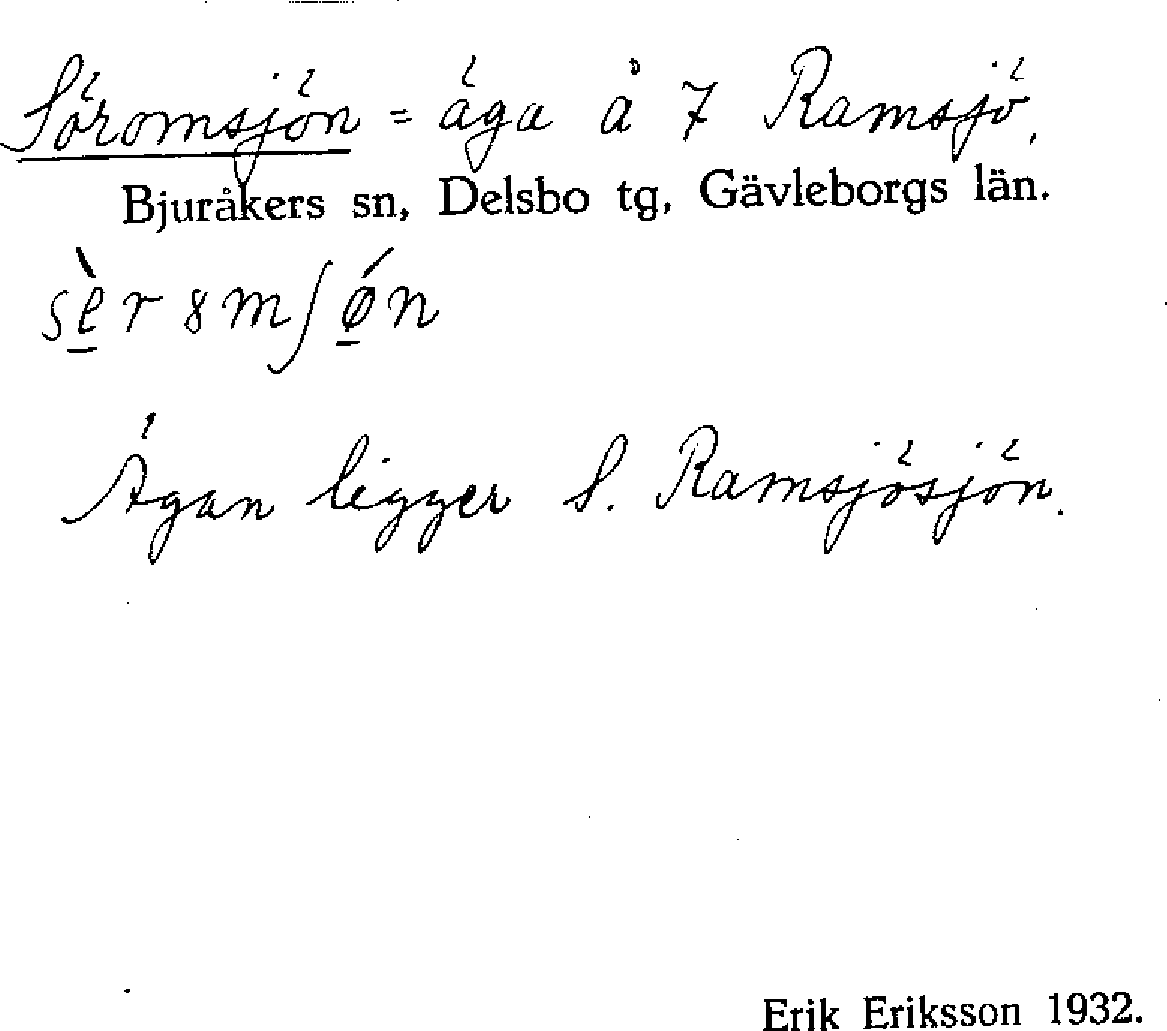 Söromsjön = äga å 7 Ramsjö.
Bjuråkers sn, Delsbo tg, Gävleborgs län.
Ägan ligger S. Ramsjösjön.
Erik Eriksson 1932.